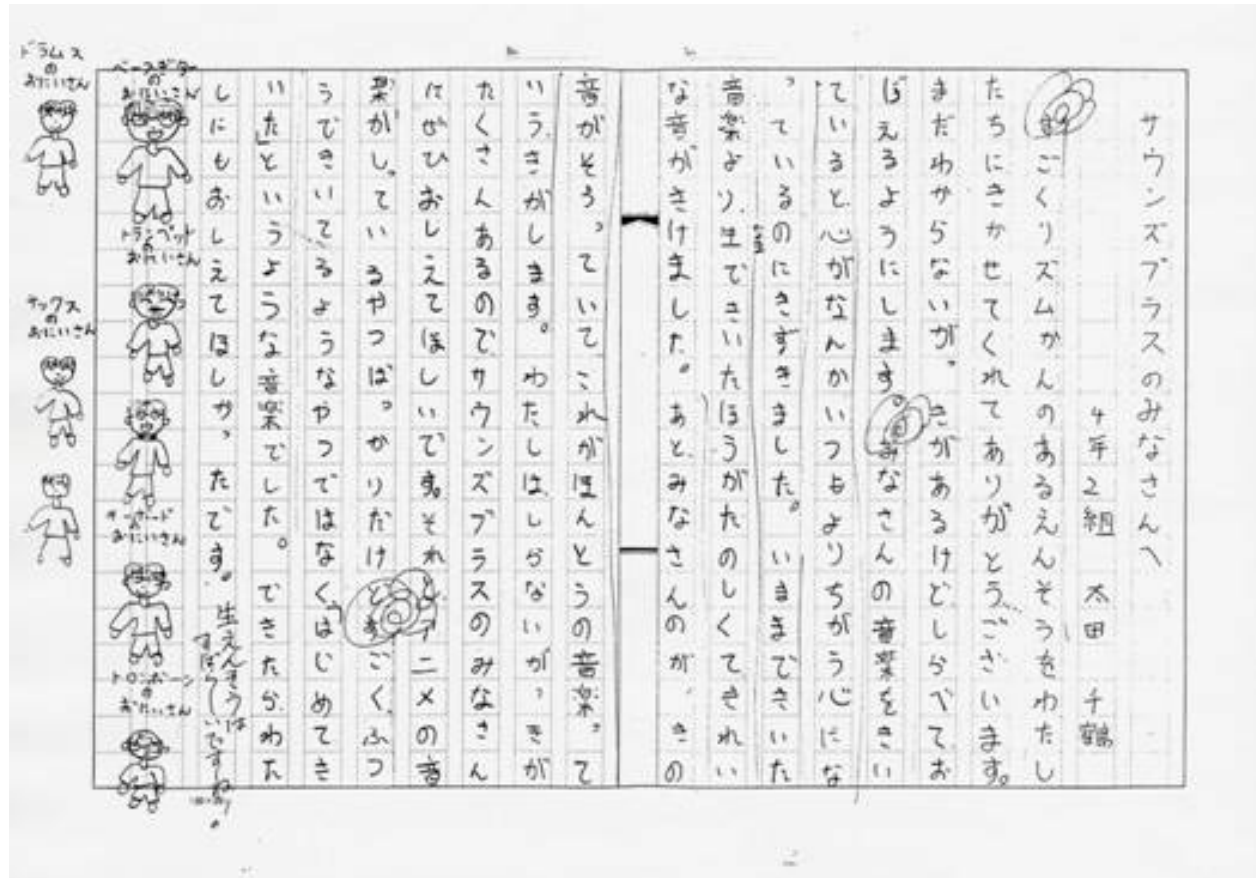 サウンズブラスのみなさんへ
4年2組 太田 千鶴
すごくリズムかんのあるえんそうをわたし
たちにきかせてくれてありがとうございます。
まだわからないが。きがあるけどしらべて、お
ぼえるようにします。みなさんの音楽をきい
ていると、心がなんかいつもよりちがう心にな
っているのにきずきました。いままできいた
音楽より、生できいたほうがたのしくてきれい
な音がきけました。あとみなさんのが、きの
音がそろっていてこれがほんとうの音楽って
いうきがします。わたしは、しらないがっきが
たくさんあるのでサウンズブラスのみなさん
にぜひおしえてほしいです。それとアニメの音
楽がしっているやつばっかりだけどすごく、ふつ
うできいてるようなやつではなく、「はじめてき
いた」というような音楽でした。できたら、わた
しにもおしえてほしかったです。
生えんそうは
すばらしいですね!
ドラムスのおにいさん
ベースギターのおにいさん
トランペットのおにいさん
サックスのおにいさん
キーボードおにいさん
トロンボーンのおにいさん